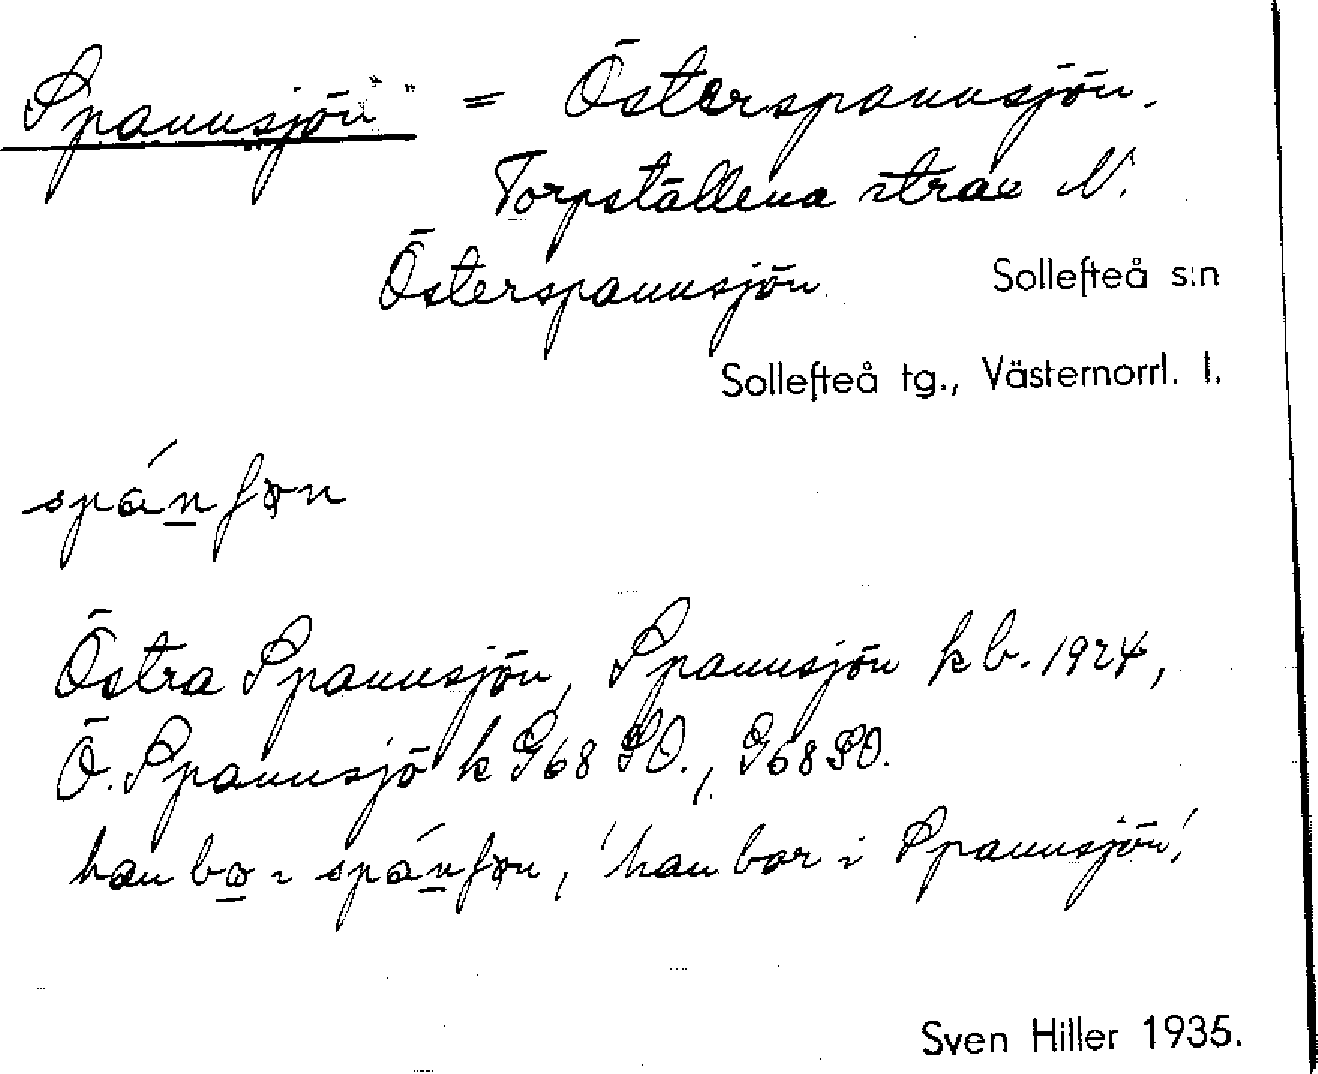 Spannsjön" = Österspannsjön.
Torpställena strax N.
Österspannsjön. Sollefteå s:n
Sollefteå tg., Västernorrl. l.
spánʃøn
Östra Spannsjön, Spannsjön kb. 1924,
Ö. Spannsjö k G68 SO., G68SO.
han bø i spánʃøn, 'han bor i Spannsjön'
Sven Hiller 1935.